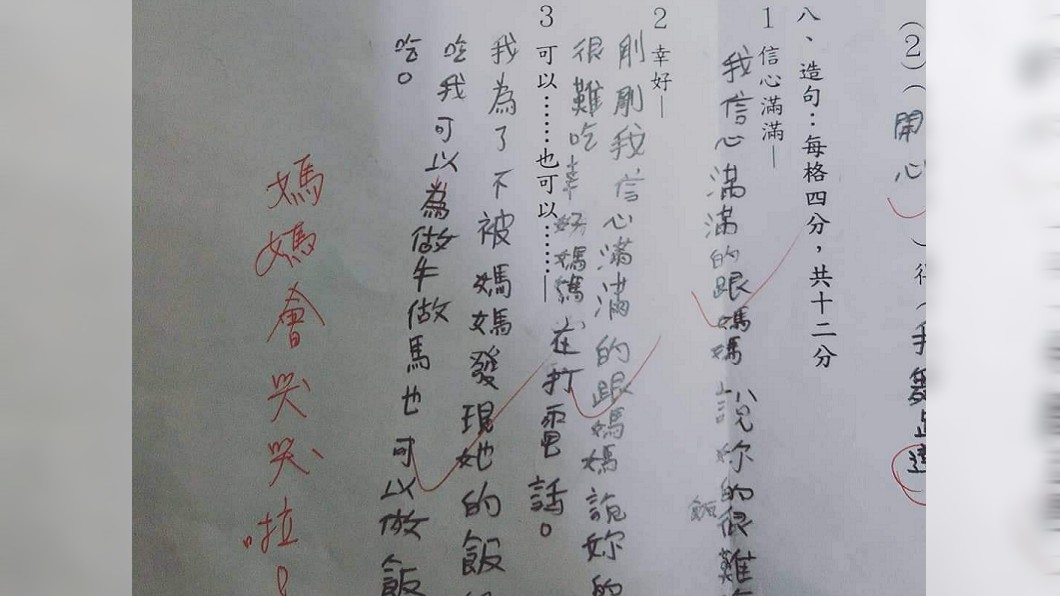 (2)(開心
)得(手舞足達
八、造句：每格四分，共十二分
1 信心滿滿—
我信心滿滿的跟媽媽說妳的飯很難吃
2 幸好—
剛剛我信心滿滿的跟媽媽說妳的
很難吃幸好媽媽在打電話。
3 可以……也可以……—
我為了不被媽媽發現她的飯
吃我可以為做牛做馬也可以做飯
吃。
媽媽會哭哭啦！